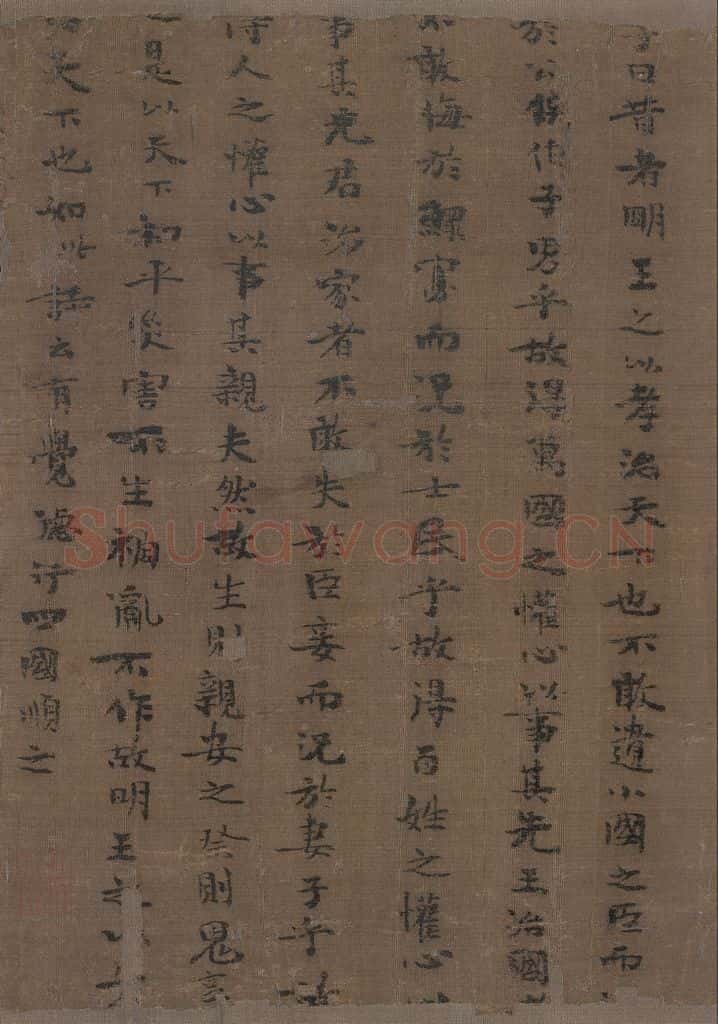 子曰昔者明王之以孝治天下也不敢遺小國之臣而
於公侯伯子男乎故得萬國之懽心以事其先王治國
不敢侮於鰥寡而況於士民乎故得百姓之懽心以
事其先君治家者不敢失於臣妾而況於妻子乎故
得人之懽心以事其親夫然故生則親安之祭則鬼享
之是以天下和平災害不生禍亂不作故明王之以孝
治天下也如此詩云有覺德行四國順之
Shufawang.CN